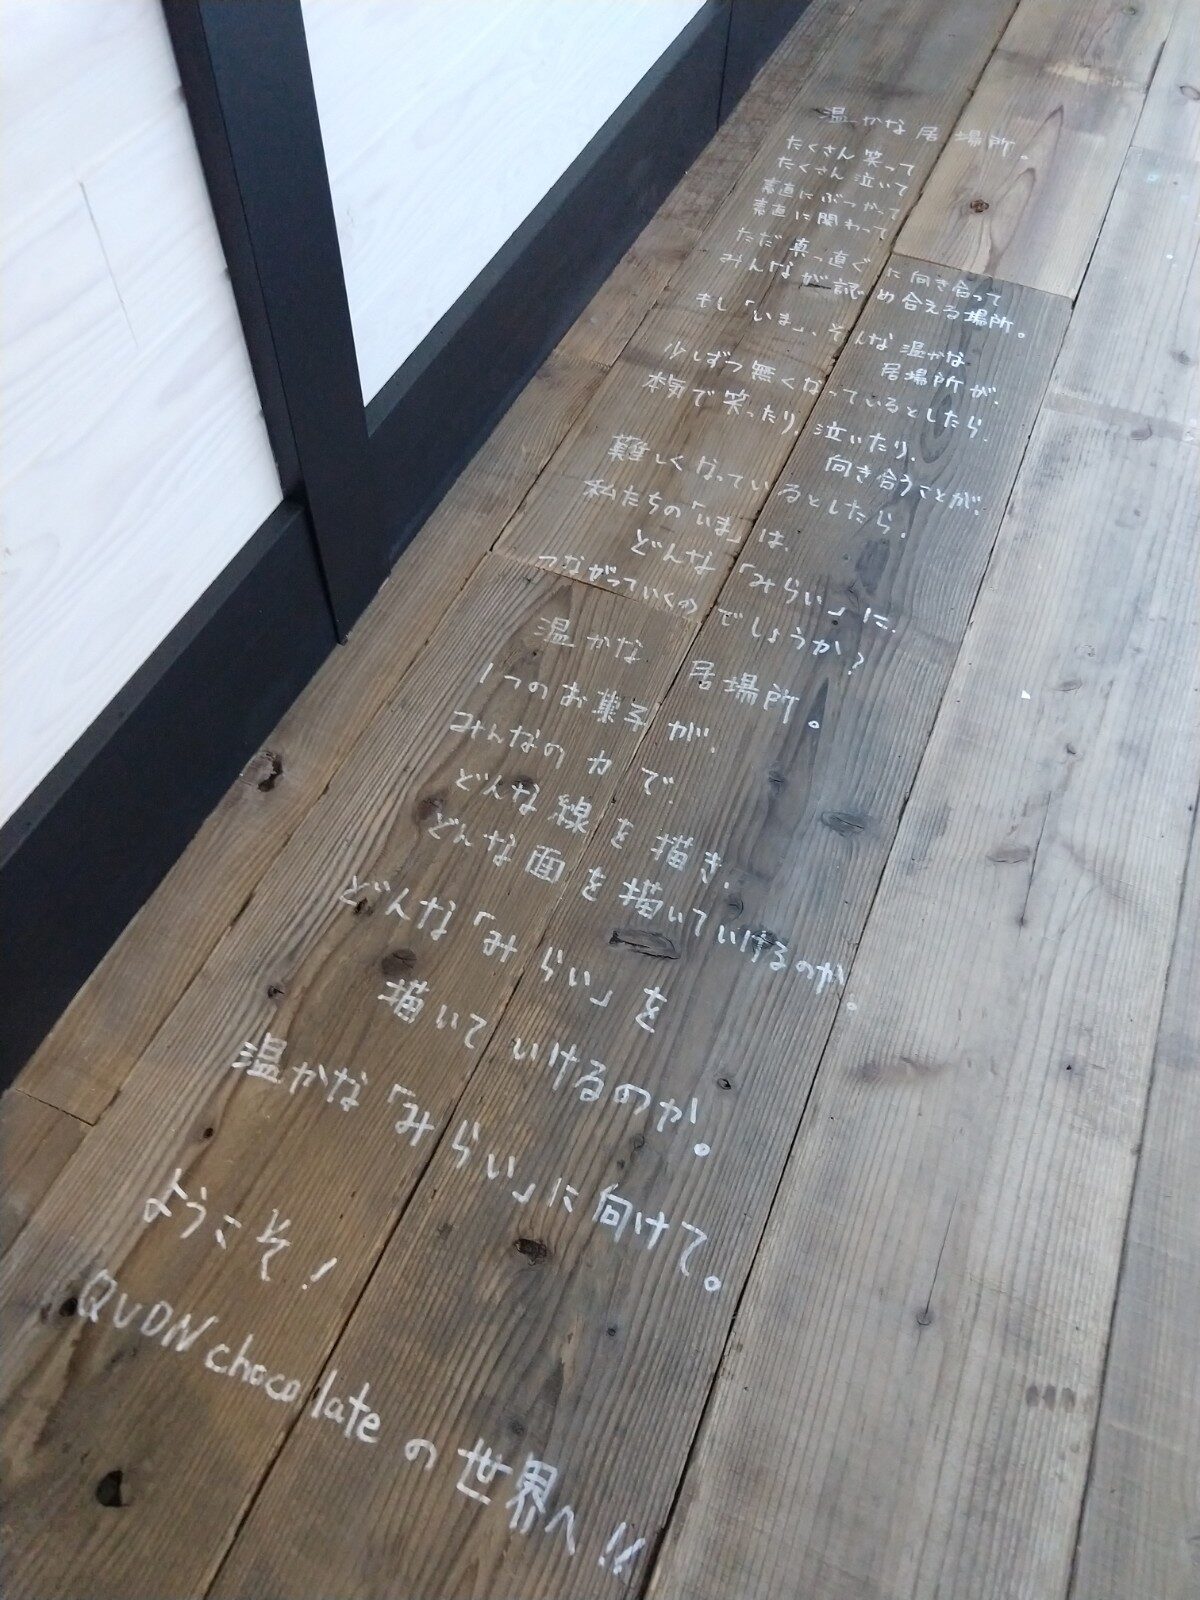 温かな居場所。
たくさん笑って
たくさん泣いて
素直にぶつかって
素直に関わって
ただ真っ直ぐに向き合って
みんなが認め合える場所。
もし「いま」、そんな温かな
居場所が、
少しずつ無くなっているとしたら、
本気で笑ったり、泣いたり、
向き合うことが、
難しくなっているとしたら、
私たちの「いま」は、
どんな「みらい」に、
つながっていくのでしょうか?
温かな 居場所。
1つのお菓子が、
みんなの力で、
どんな線を描き、
どんな面を描いていけるのか。
どんな「みらい」を
描いていけるのか。
温かな「みらい」に向けて。
ようこそ!
QUON chocolate の世界へ!!